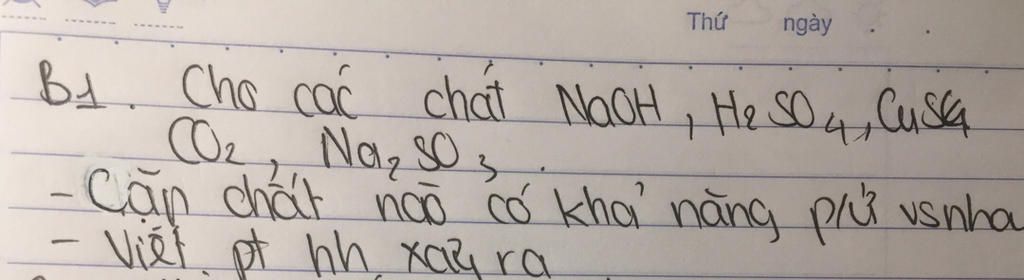 Thứ ngày . .
B1. Cho các chất NaOH, H2SO4, CuSO4
CO2, Na2SO3.
- Cặp chất nào có khả năng p/ứ vs nha
- Viết pt hh xảy ra